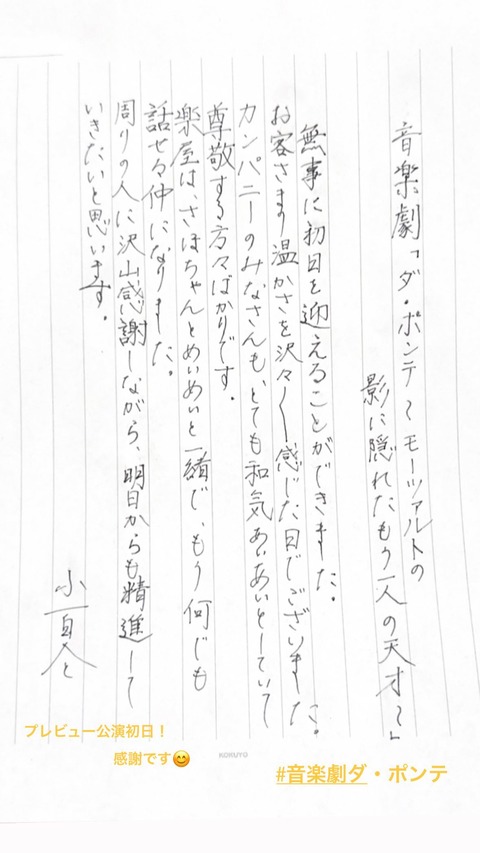 音楽劇「ダ・ポンテ〜モーツァルトの
影に隠れたもう一人の天才〜」
無事に初日を迎えることができました。
お客さまの温かさを沢山〱感じた日でございました。
カンパニーのみなさんも、とても和気あいあいとしていて
尊敬する方々ばかりです。
楽屋は、さほちゃんとめいめいと一緒で、もう何でも
話せる仲になりました。
周りの人に沢山感謝しながら、明日からも精進して
いきたいと思います。
プレビュー公演初日！
感謝です😊
KOKUYO
#音楽劇ダ・ポンテ